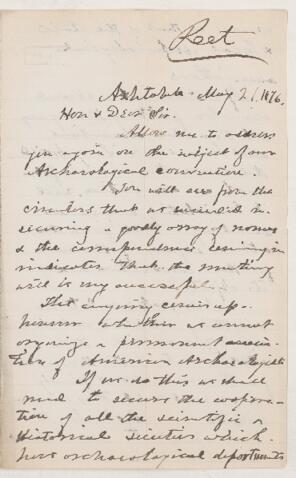 Peet
Ashtabula May 21, 1876.
Hon & Dear Sir.
Allow me to address
you again on the subject of our
Archaeological convention.
You will see from the
circulars that we succeed in
securing a goodly array of names
& the correspondence coming in
indicates that the meeting
will be very successful.
The inquiry comes up
whether we cannot
organize a permanent associa-
tion of American Archaeologists
If we do this we shall
need to secure the coopera-
tion of all the scientific &
Historical societies which
have archaeological departments